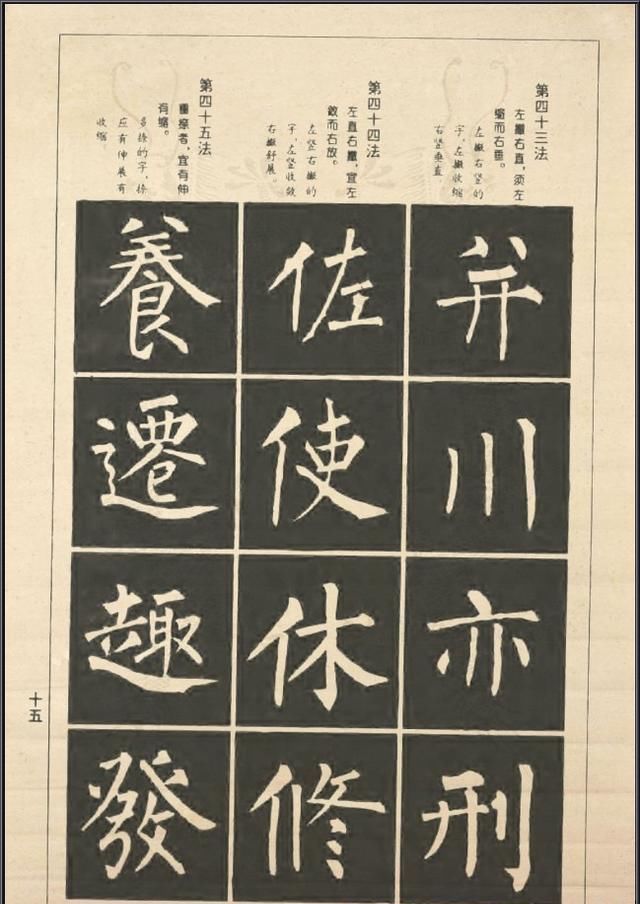 第四十三法
左撇右直,须左
缩而右垂。
左撇右竖的
字,左撇收缩
右竖垂直
并
川
亦
刑
第四十四法
左直右撇,宜左
敛而右放。
左竖右撇的
字,左竖收敛
右撇舒展。
佐
使
休
修
第四十五法
重捺者,宜有伸
有缩。
多捺的字,捺
应有伸展有
收缩
養
遷
趣
發
十五